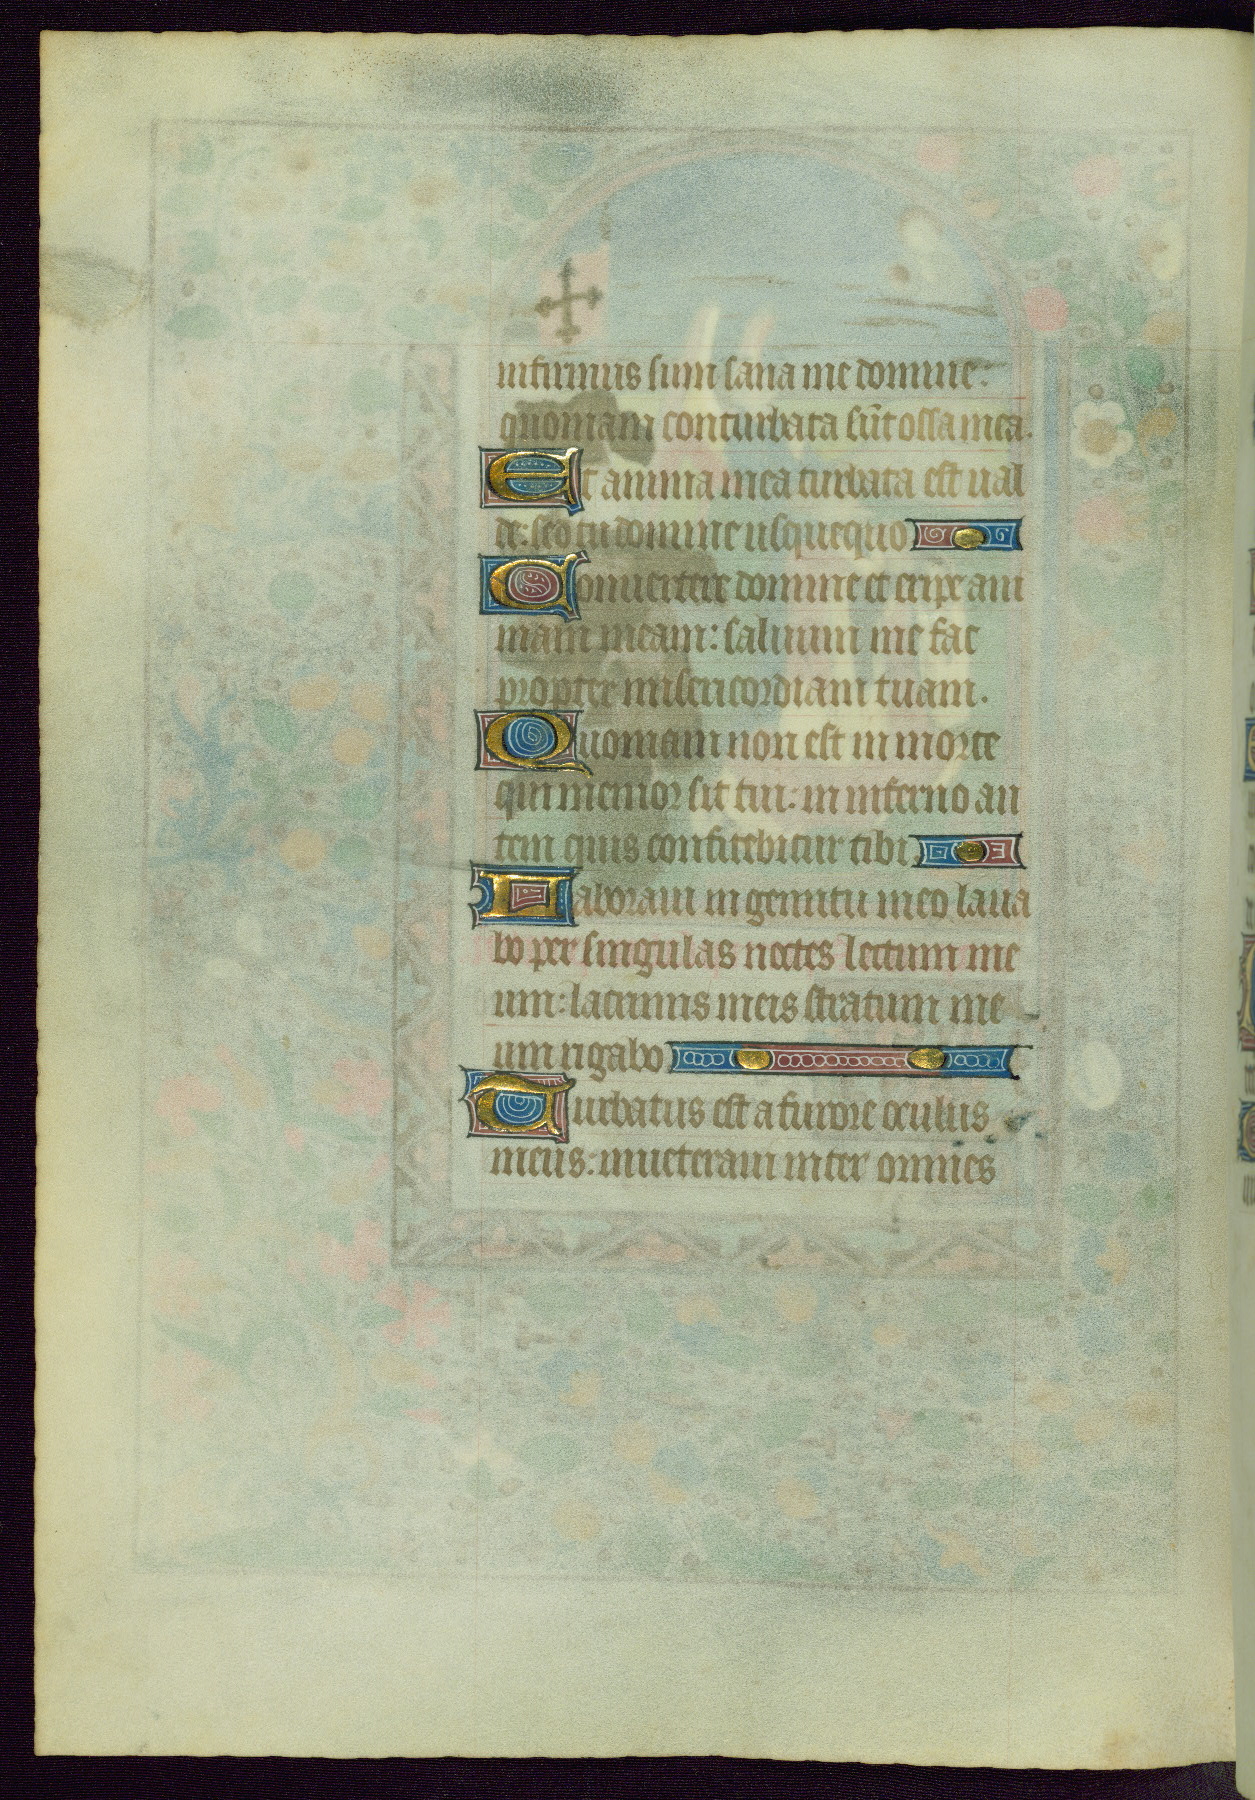 infirmus sum sana me domine:
quoniam conturbata sūt ossa mea.
Et anima mea turbata est ual
de: seo tu domine usquequo
Conuertere domine et eripe ani
mam meam: saluum me fac
propter misericordiam tuam.
Quoniam non est in morte
qui memor sit tui: in inferno au
tem quis confitebitur tibi
Laboraui in gemitu meo laua
bo per singulas noctes lectum me
um: lacrimis meis stratum me
um rigabo
Turbatus est a furore oculus
meus: inueteraui inter omnes